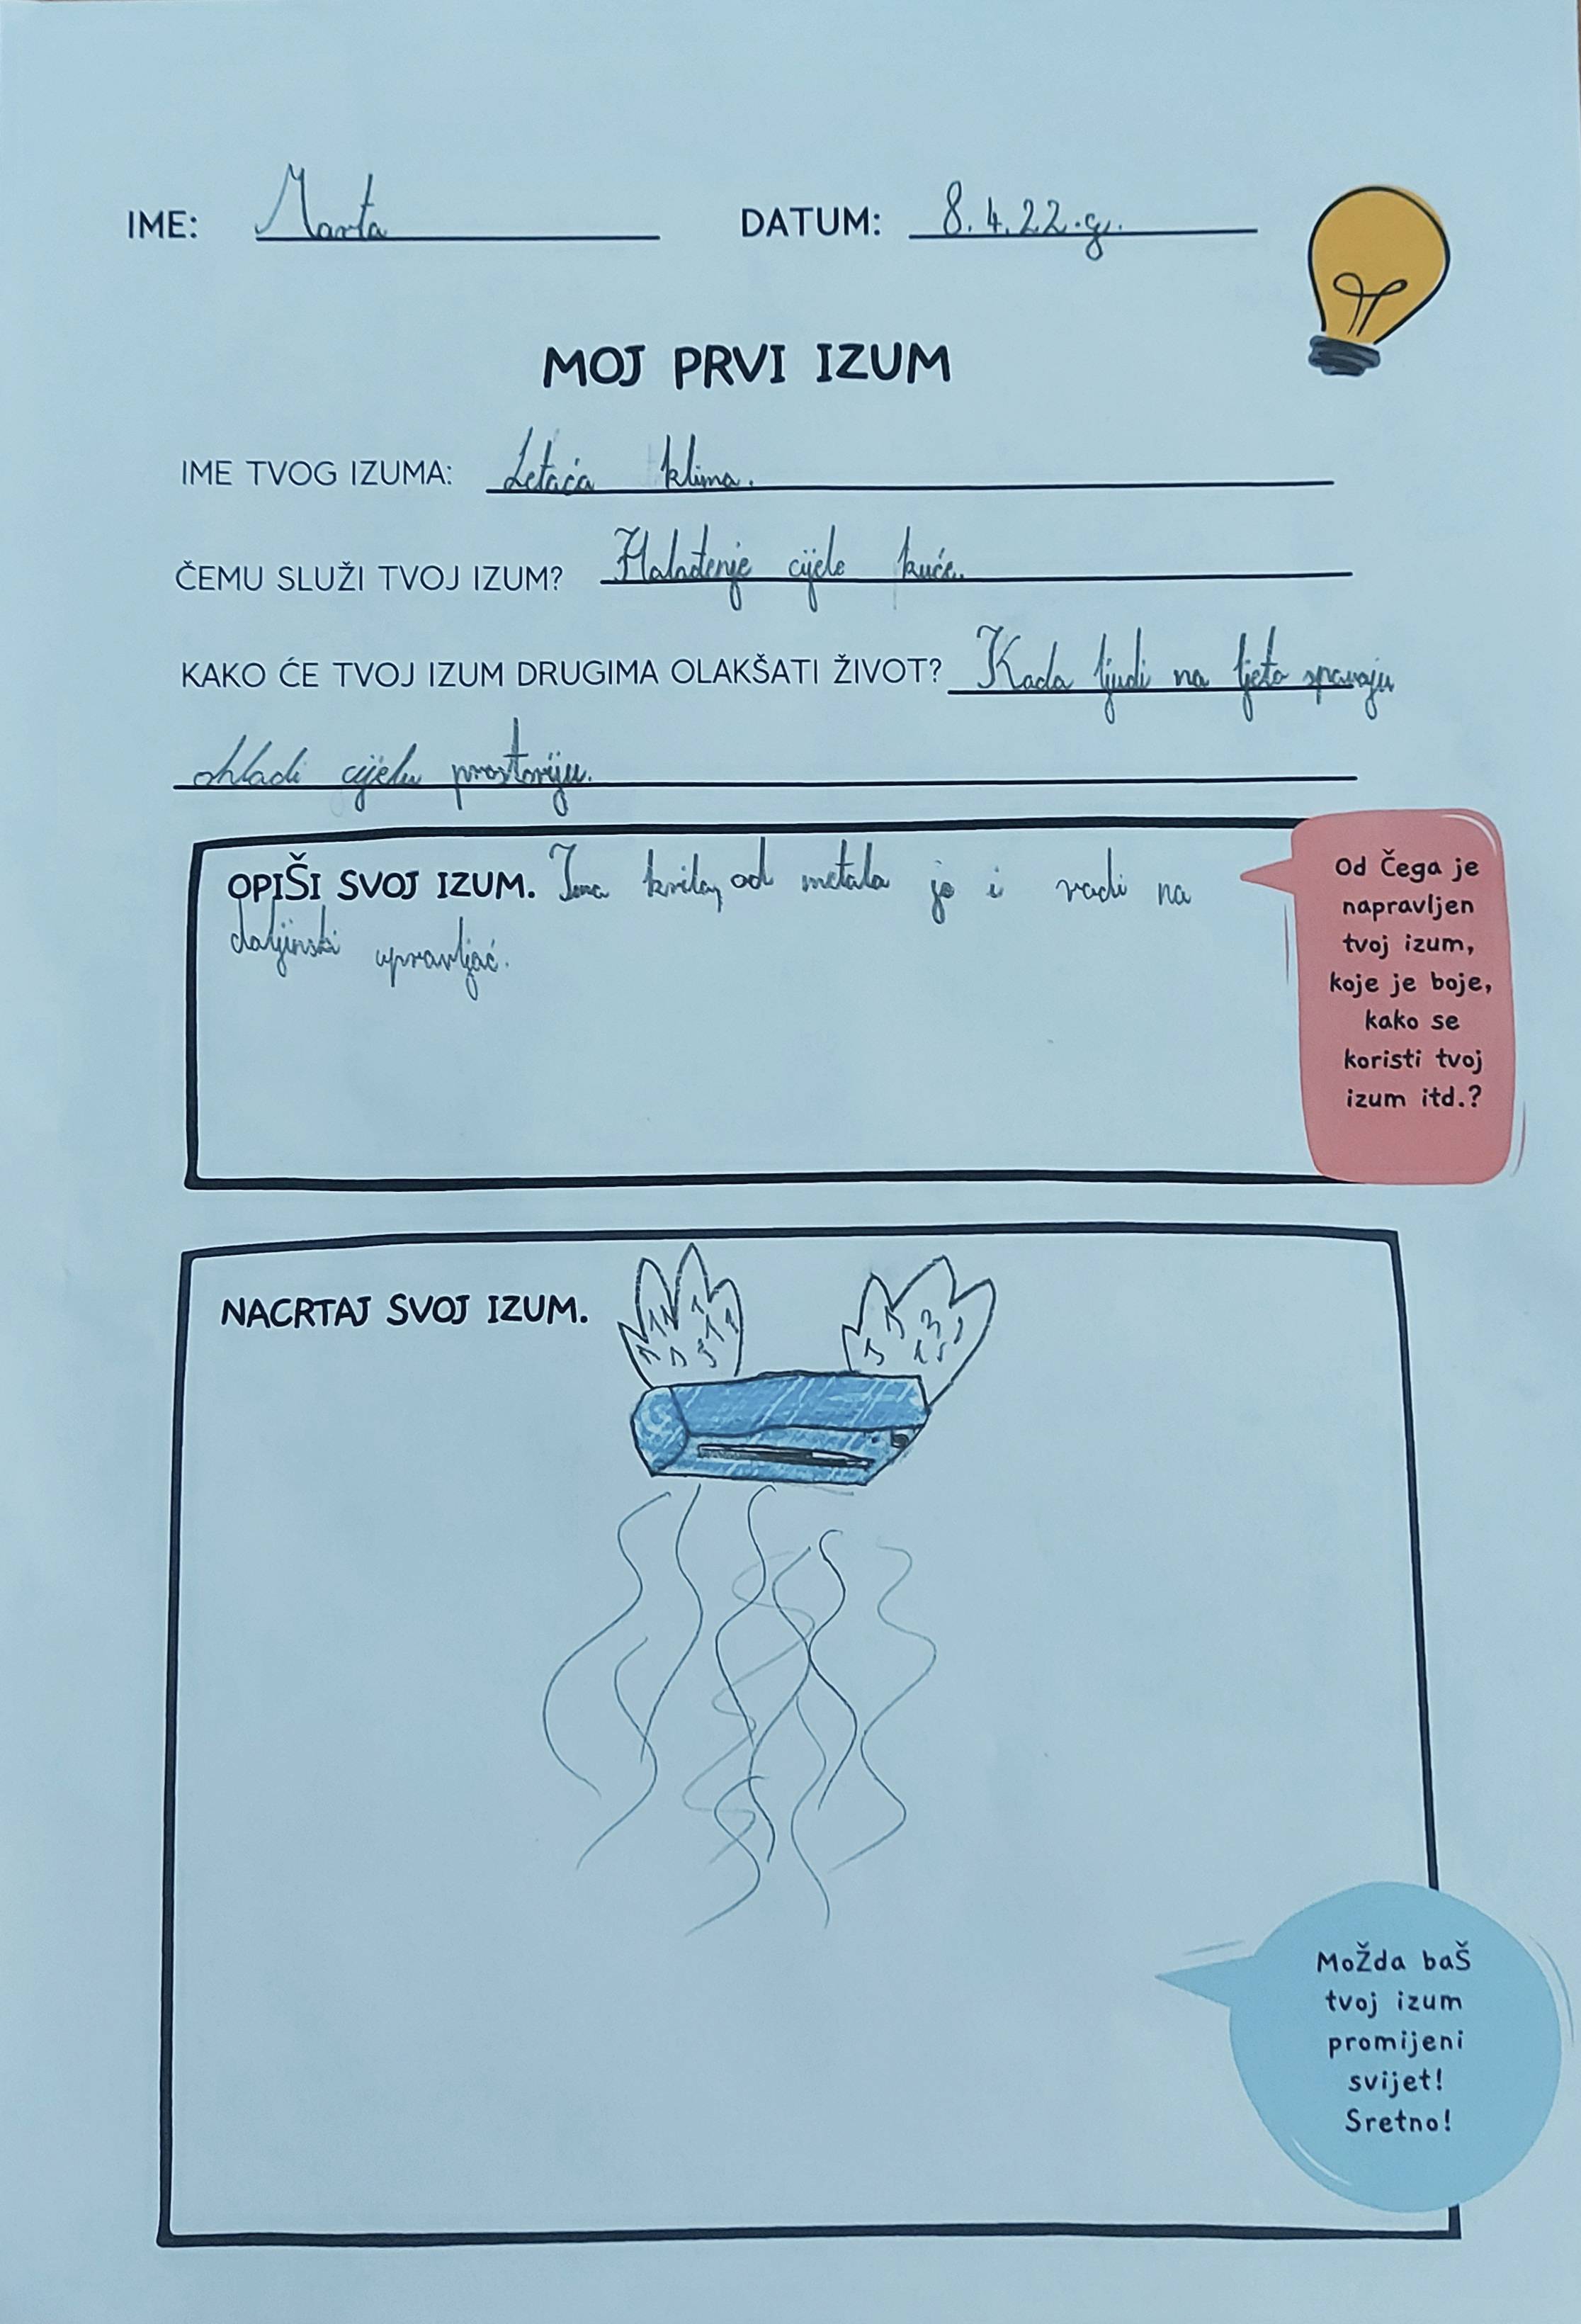 IME: Marta DATUM: 8.4.22.g.
MOJ PRVI IZUM
IME TVOG IZUMA: Letaća klima.
ČEMU SLUŽI TVOJ IZUM? Hlađenje cijele kuće.
KAKO ĆE TVOJ IZUM DRUGIMA OLAKŠATI ŽIVOT? Kada ljudi na ljeto spavaju
ohladi cijelu prostoriju.
OPIŠI SVOJ IZUM. Ima krila, od metala je i radi na
daljinski upravljać.
Od Čega je
napravljen
tvoj izum,
koje je boje,
kako se
koristi tvoj
izum itd.?
NACRTAJ SVOJ IZUM.
MoŽda baŠ
tvoj izum
promijeni
svijet!
Sretno!